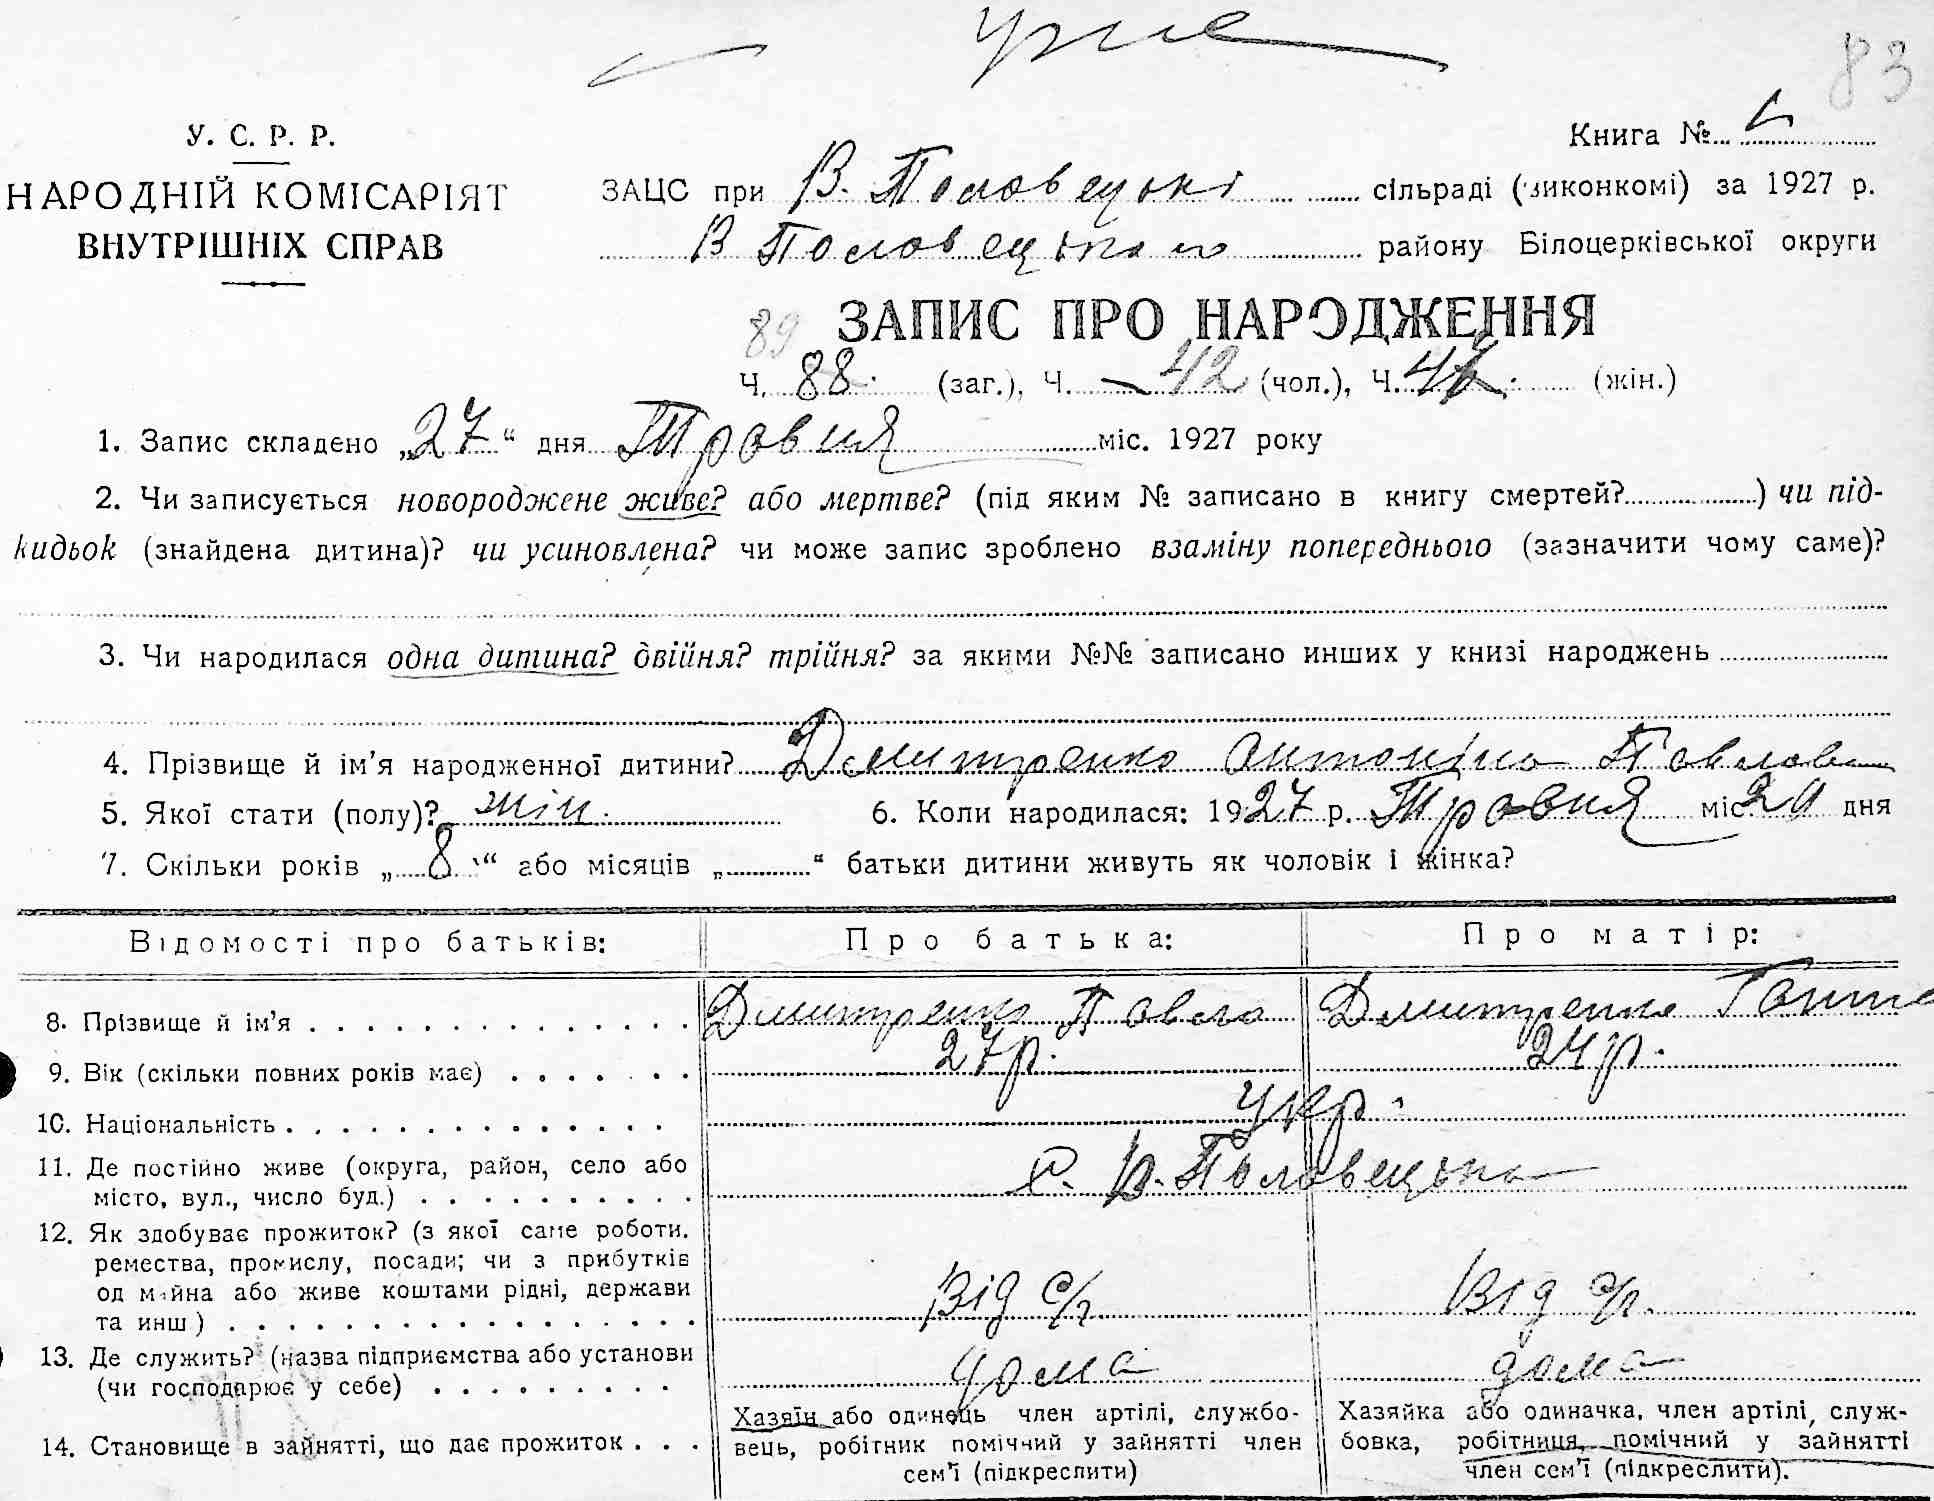 83
У. С. Р. Р.
НАРОДНІЙ КОМІСАРІЯТ
ВНУТРІШНІХ СПРАВ
Книга №
ЗАЦС при В. Половецькі сільраді (виконкомі) за 1927 р.
В Половецького району Білоцерківської округи
ЗАПИС ПРО НАРОДЖЕННЯ
89
Ч. 88. (заг.), Ч. — 42 (чол.), Ч. (жін.)
1. Запис складено „27“ дня Травня міс. 1927 року
2. Чи записується новороджене живе? або мертве? (під яким № записано в книгу смертей? ) чи під-
кидьок (знайдена дитина)? чи усиновлена? чи може запис зроблено взаміну попереднього (зазначити чому саме)?
3. Чи народилася одна дитина? двійня? трійня? за якими №№ записано инших у книзі народжень
4. Прізвище й ім'я народженної дитини? Дмитренко Антоніна Павлова
5. Якої стати (полу)? жін. 6. Коли народилася: 1927 р. Травня міс. дня
7. Скільки років „8“ або місяців „ “ батьки дитини живуть як чоловік і жінка?
Відомості про батьків: Про батька: Про матір:
8. Прізвище й ім'я Дмитренко Павло Дмитренко
9. Вік (скільки повних років має) 27 р. 24 р.
10. Національність укр.
11. Де постійно живе (округа, район, село або
місто, вул., число буд.) с. В. Половецьке
12. Як здобуває прожиток? (з якої саме роботи,
ремества, промислу, посади; чи з прибутків
од майна або живе коштами рідні, держави
та инш) Від с/г Від с/г.
13. Де служить? (назва підприємства або установи
(чи господарює у себе) дома дома
14. Становище в зайнятті, що дає прожиток
Хазяїн або одинець член артілі, службо-
вець, робітник помічний у зайнятті член
сем'ї (підкреслити)
Хазяйка або одиначка, член артілі, служ-
бовка, робітниця, помічний у зайнятті
член сем'ї (підкреслити).